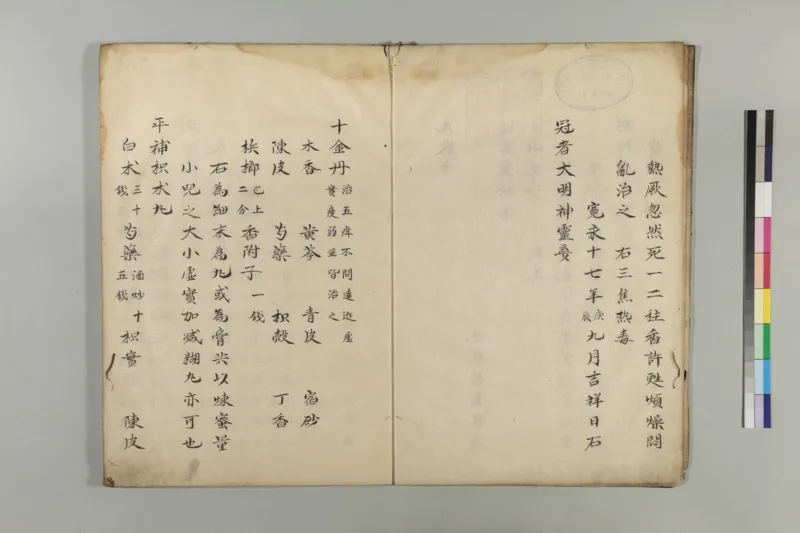 熱厥忽然死一二炷香許甦煩燥悶
亂治之 右三焦熱毒
寛永十七年庚辰九月吉祥日石
冠者大明神靈夢
十金丹治五疳不問遠近虛實瘦弱並皆治之
木香 黄芩 青皮 宿砂
陳皮 芍藥 枳殼 丁香
檳榔已上二分香附子一錢
右為細末為丸或為膏共以煉蜜量
小児之大小虛實加減糊丸亦可也
平補枳朮丸
白朮三十錢芍藥酒炒十五錢枳實 陳皮